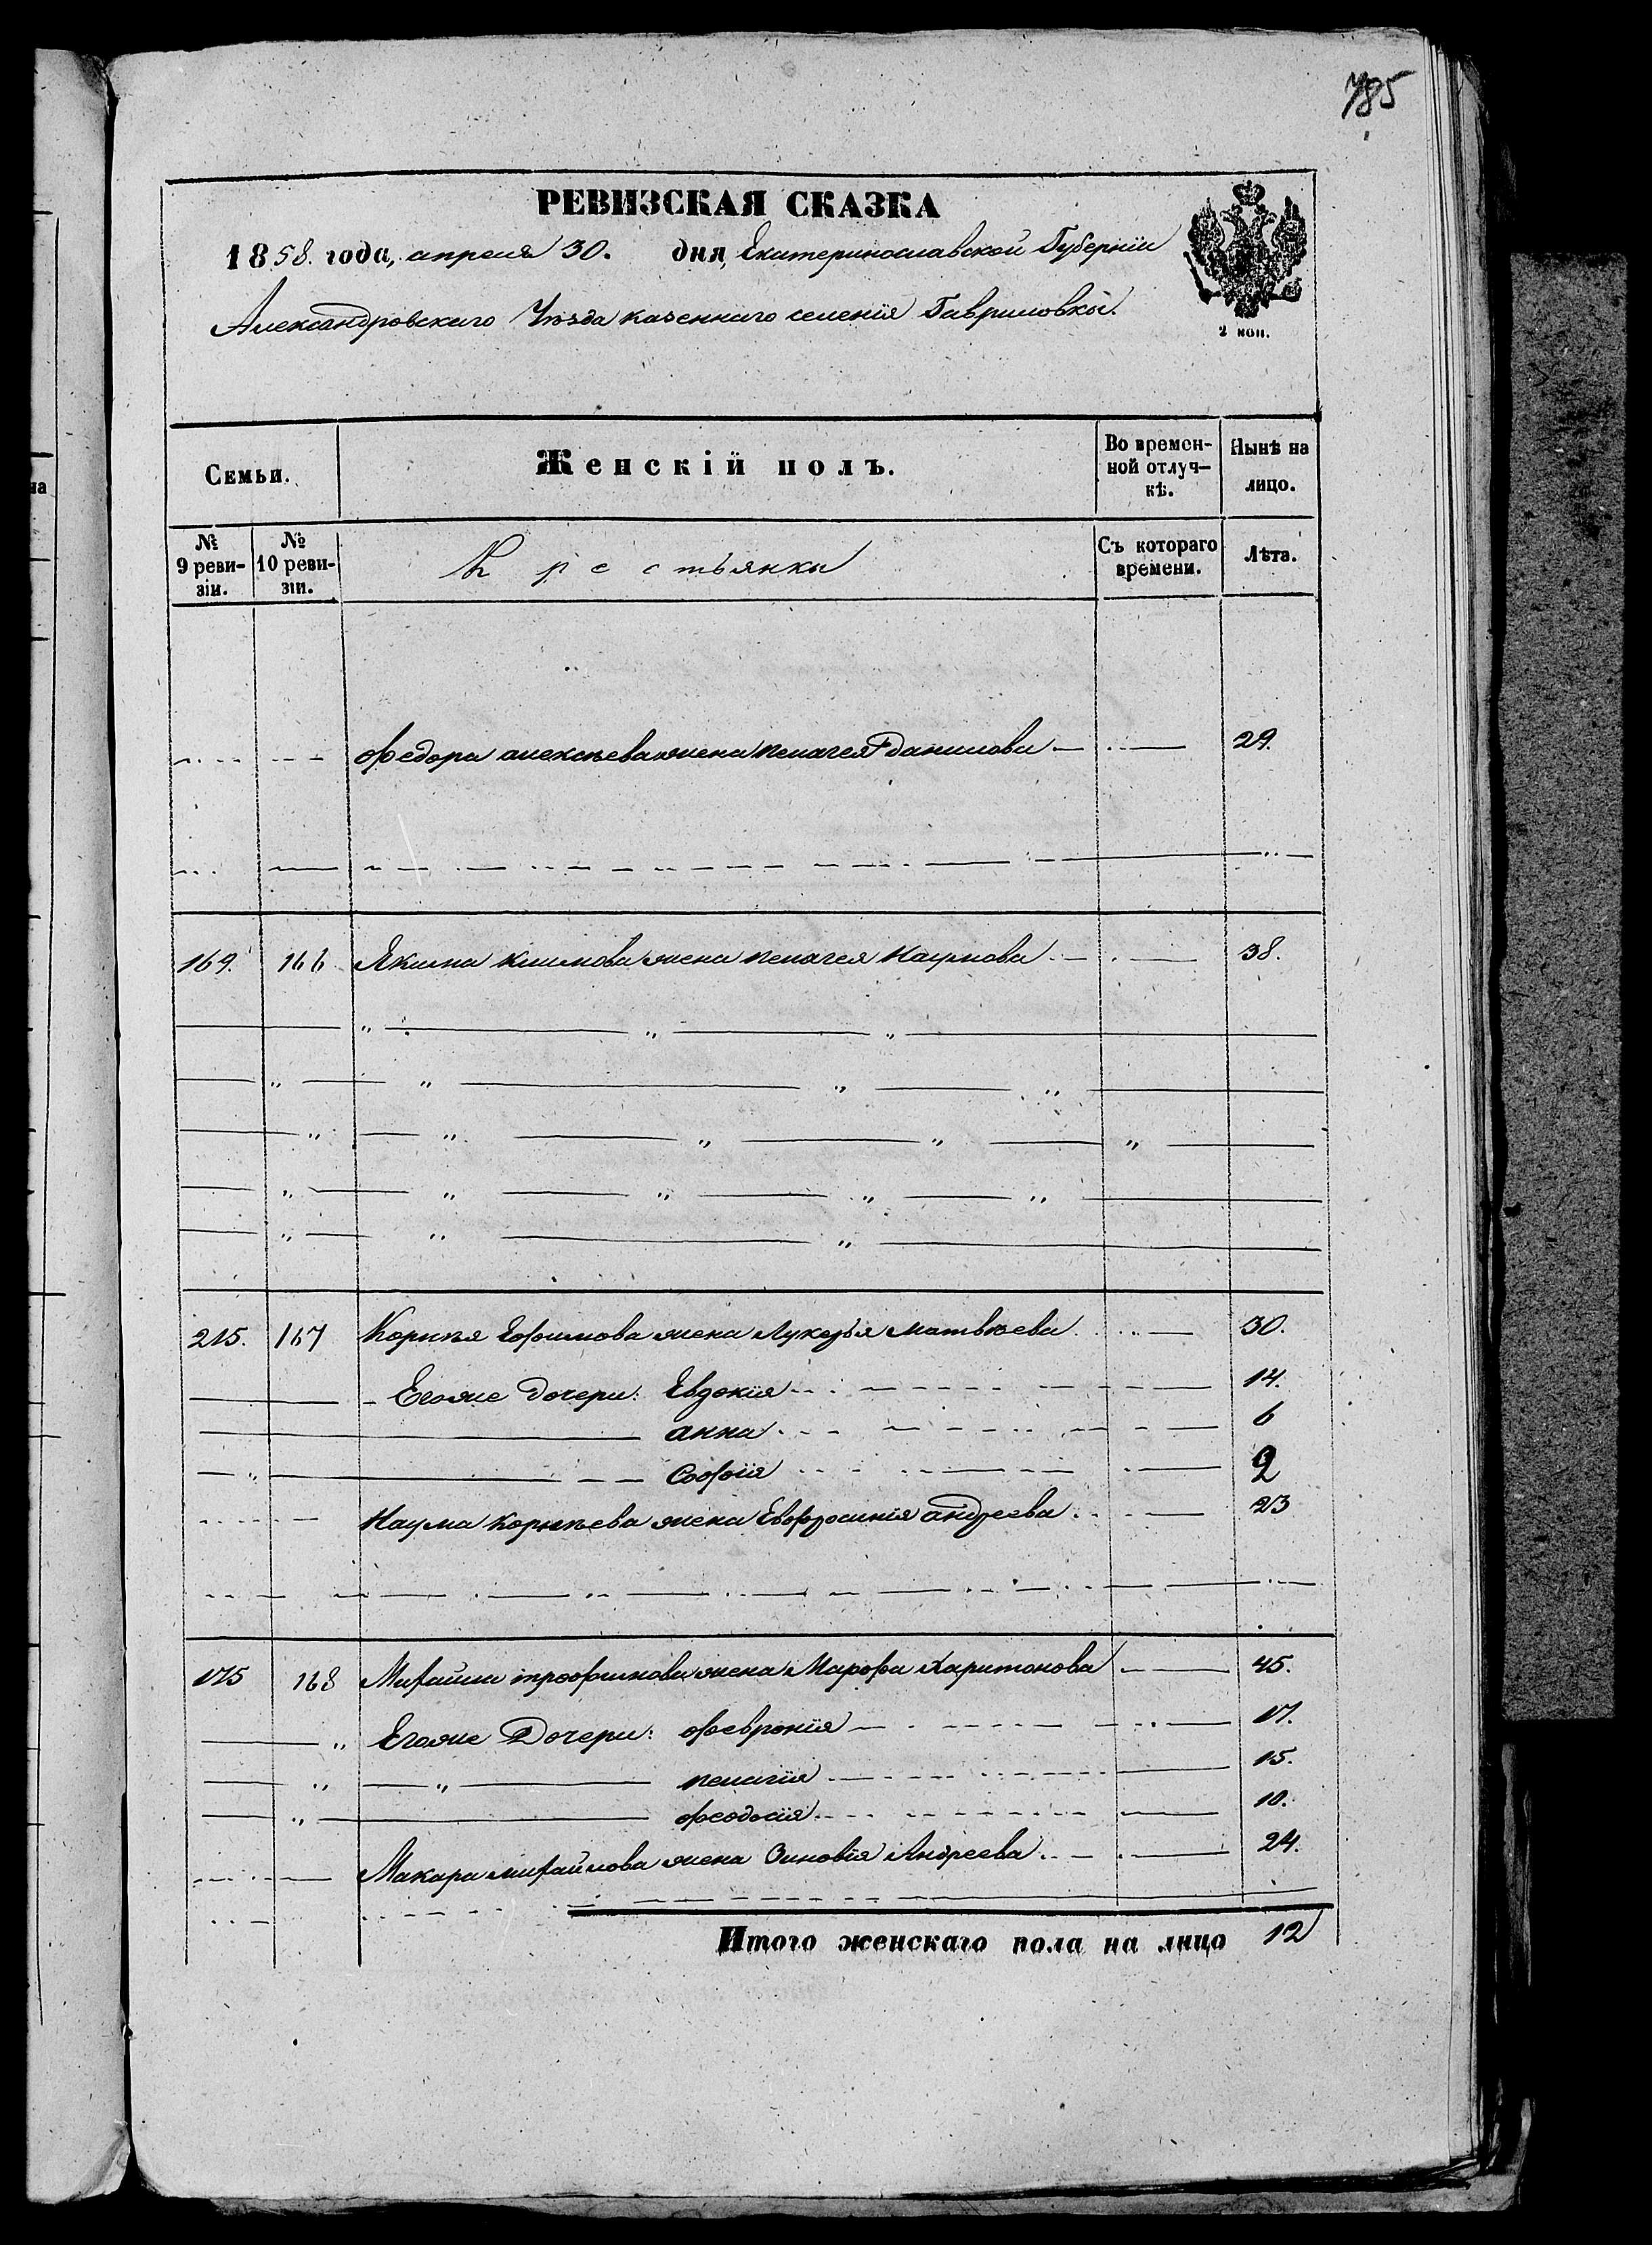 785
РЕВИЗСКАЯ СКАЗКА
1858. года, апреля 30. дня, Екатеринославской Губерніи
Александровскаго Уѣзда казеннаго селенія Гавриловки.
2 коп.
Семьи.
Женскій полъ.
Во времен-
ной отлуч-
кѣ.
Нынѣ на
лицо.
№
9 реви-
зіи.
№
10 реви-
зіи.
Крестьянки
Съ котораго
времени.
Лѣта.
Федора алексѣева жена пелагея данилова 29.
169. 166 Якима климова жена пелагея Наумова 38.
215. 167 Корнѣя Ефимова жена Лукерья матвѣева 30.
Егоже дочери: Евдокія 14.
анна 6
Софія 2
Наума корнѣева жена Евфросинія андреева 23
175 168 Михайлы трофимова жена Марфа Харитонова 45.
Егоже Дочери: февронія 17.
пелагія 15.
феодосія 10.
Макара михайлова жена Зиновія Андреева 24.
Итого женскаго пола на лицо 12